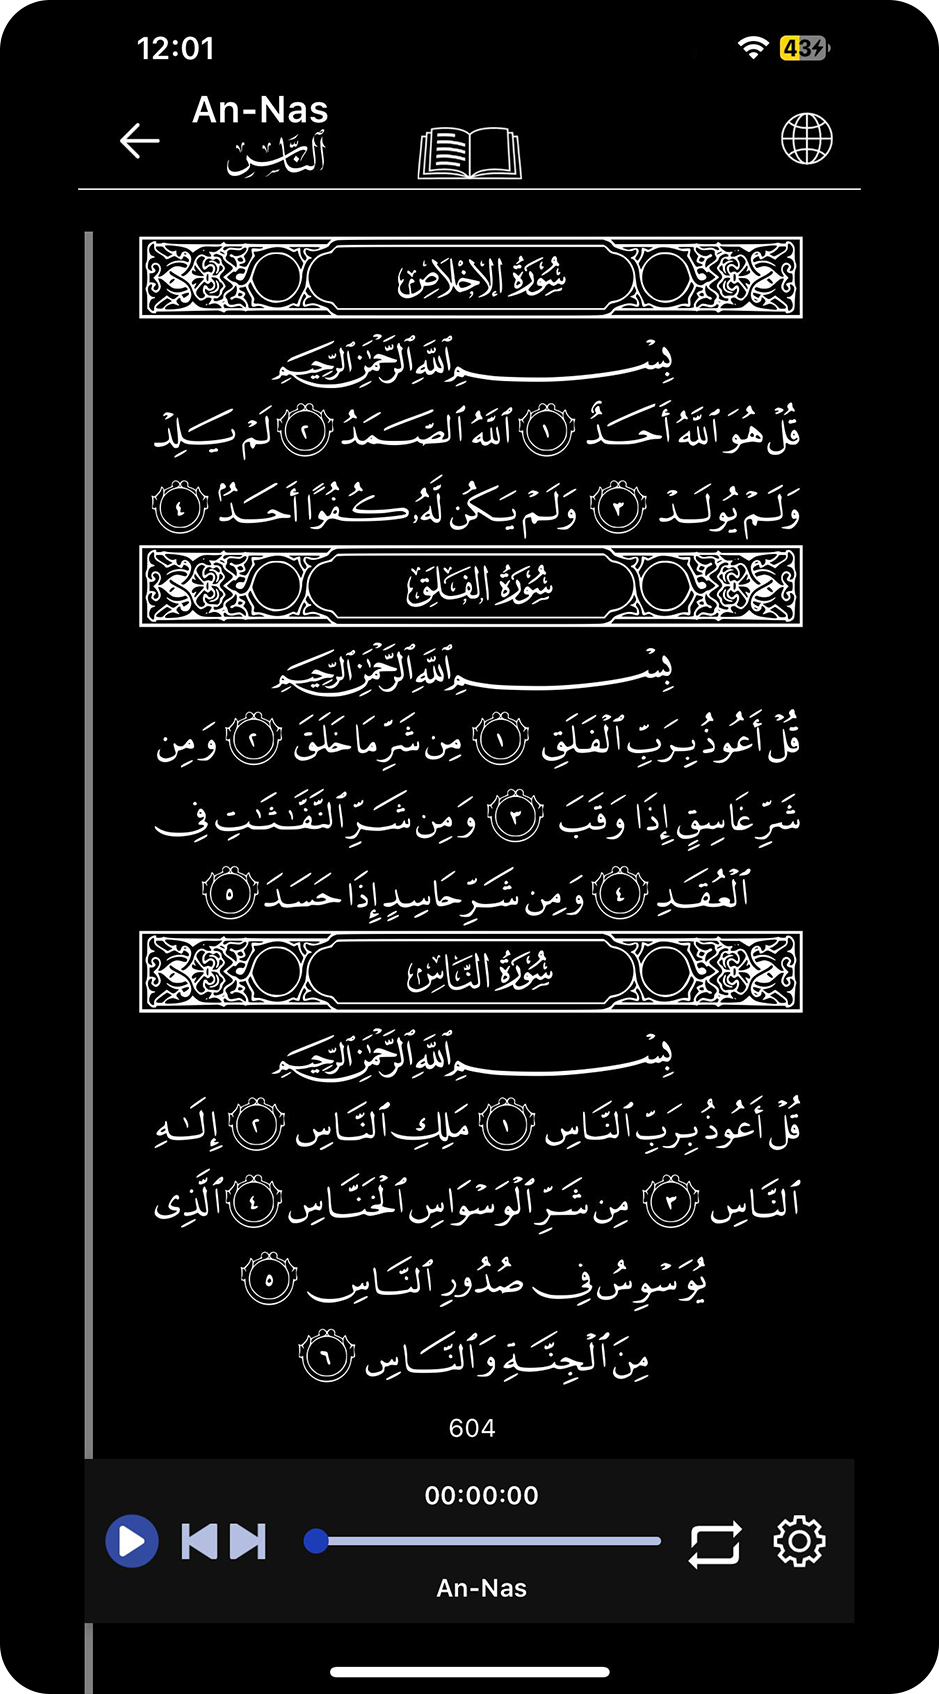 12:01
43
An-Nas
الناس
سُورَةُ الإِخْلَاصِ
بِسْمِ ٱللَّهِ ٱلرَّحْمَٰنِ ٱلرَّحِيمِ
قُلْ هُوَ ٱللَّهُ أَحَدٌ ١ ٱللَّهُ ٱلصَّمَدُ ٢ لَمْ يَلِدْ
وَلَمْ يُولَدْ ٣ وَلَمْ يَكُن لَّهُۥ كُفُوًا أَحَدٌۢ ٤
سُورَةُ الفَلَقِ
بِسْمِ ٱللَّهِ ٱلرَّحْمَٰنِ ٱلرَّحِيمِ
قُلْ أَعُوذُ بِرَبِّ ٱلْفَلَقِ ١ مِن شَرِّ مَا خَلَقَ ٢ وَمِن
شَرِّ غَاسِقٍ إِذَا وَقَبَ ٣ وَمِن شَرِّ ٱلنَّفَّٰثَٰتِ فِى
ٱلْعُقَدِ ٤ وَمِن شَرِّ حَاسِدٍ إِذَا حَسَدَ ٥
سُورَةُ النَّاسِ
بِسْمِ ٱللَّهِ ٱلرَّحْمَٰنِ ٱلرَّحِيمِ
قُلْ أَعُوذُ بِرَبِّ ٱلنَّاسِ ١ مَلِكِ ٱلنَّاسِ ٢ إِلَٰهِ
ٱلنَّاسِ ٣ مِن شَرِّ ٱلْوَسْوَاسِ ٱلْخَنَّاسِ ٤ ٱلَّذِى
يُوَسْوِسُ فِى صُدُورِ ٱلنَّاسِ ٥
مِنَ ٱلْجِنَّةِ وَٱلنَّاسِ ٦
604
00:00:00
An-Nas